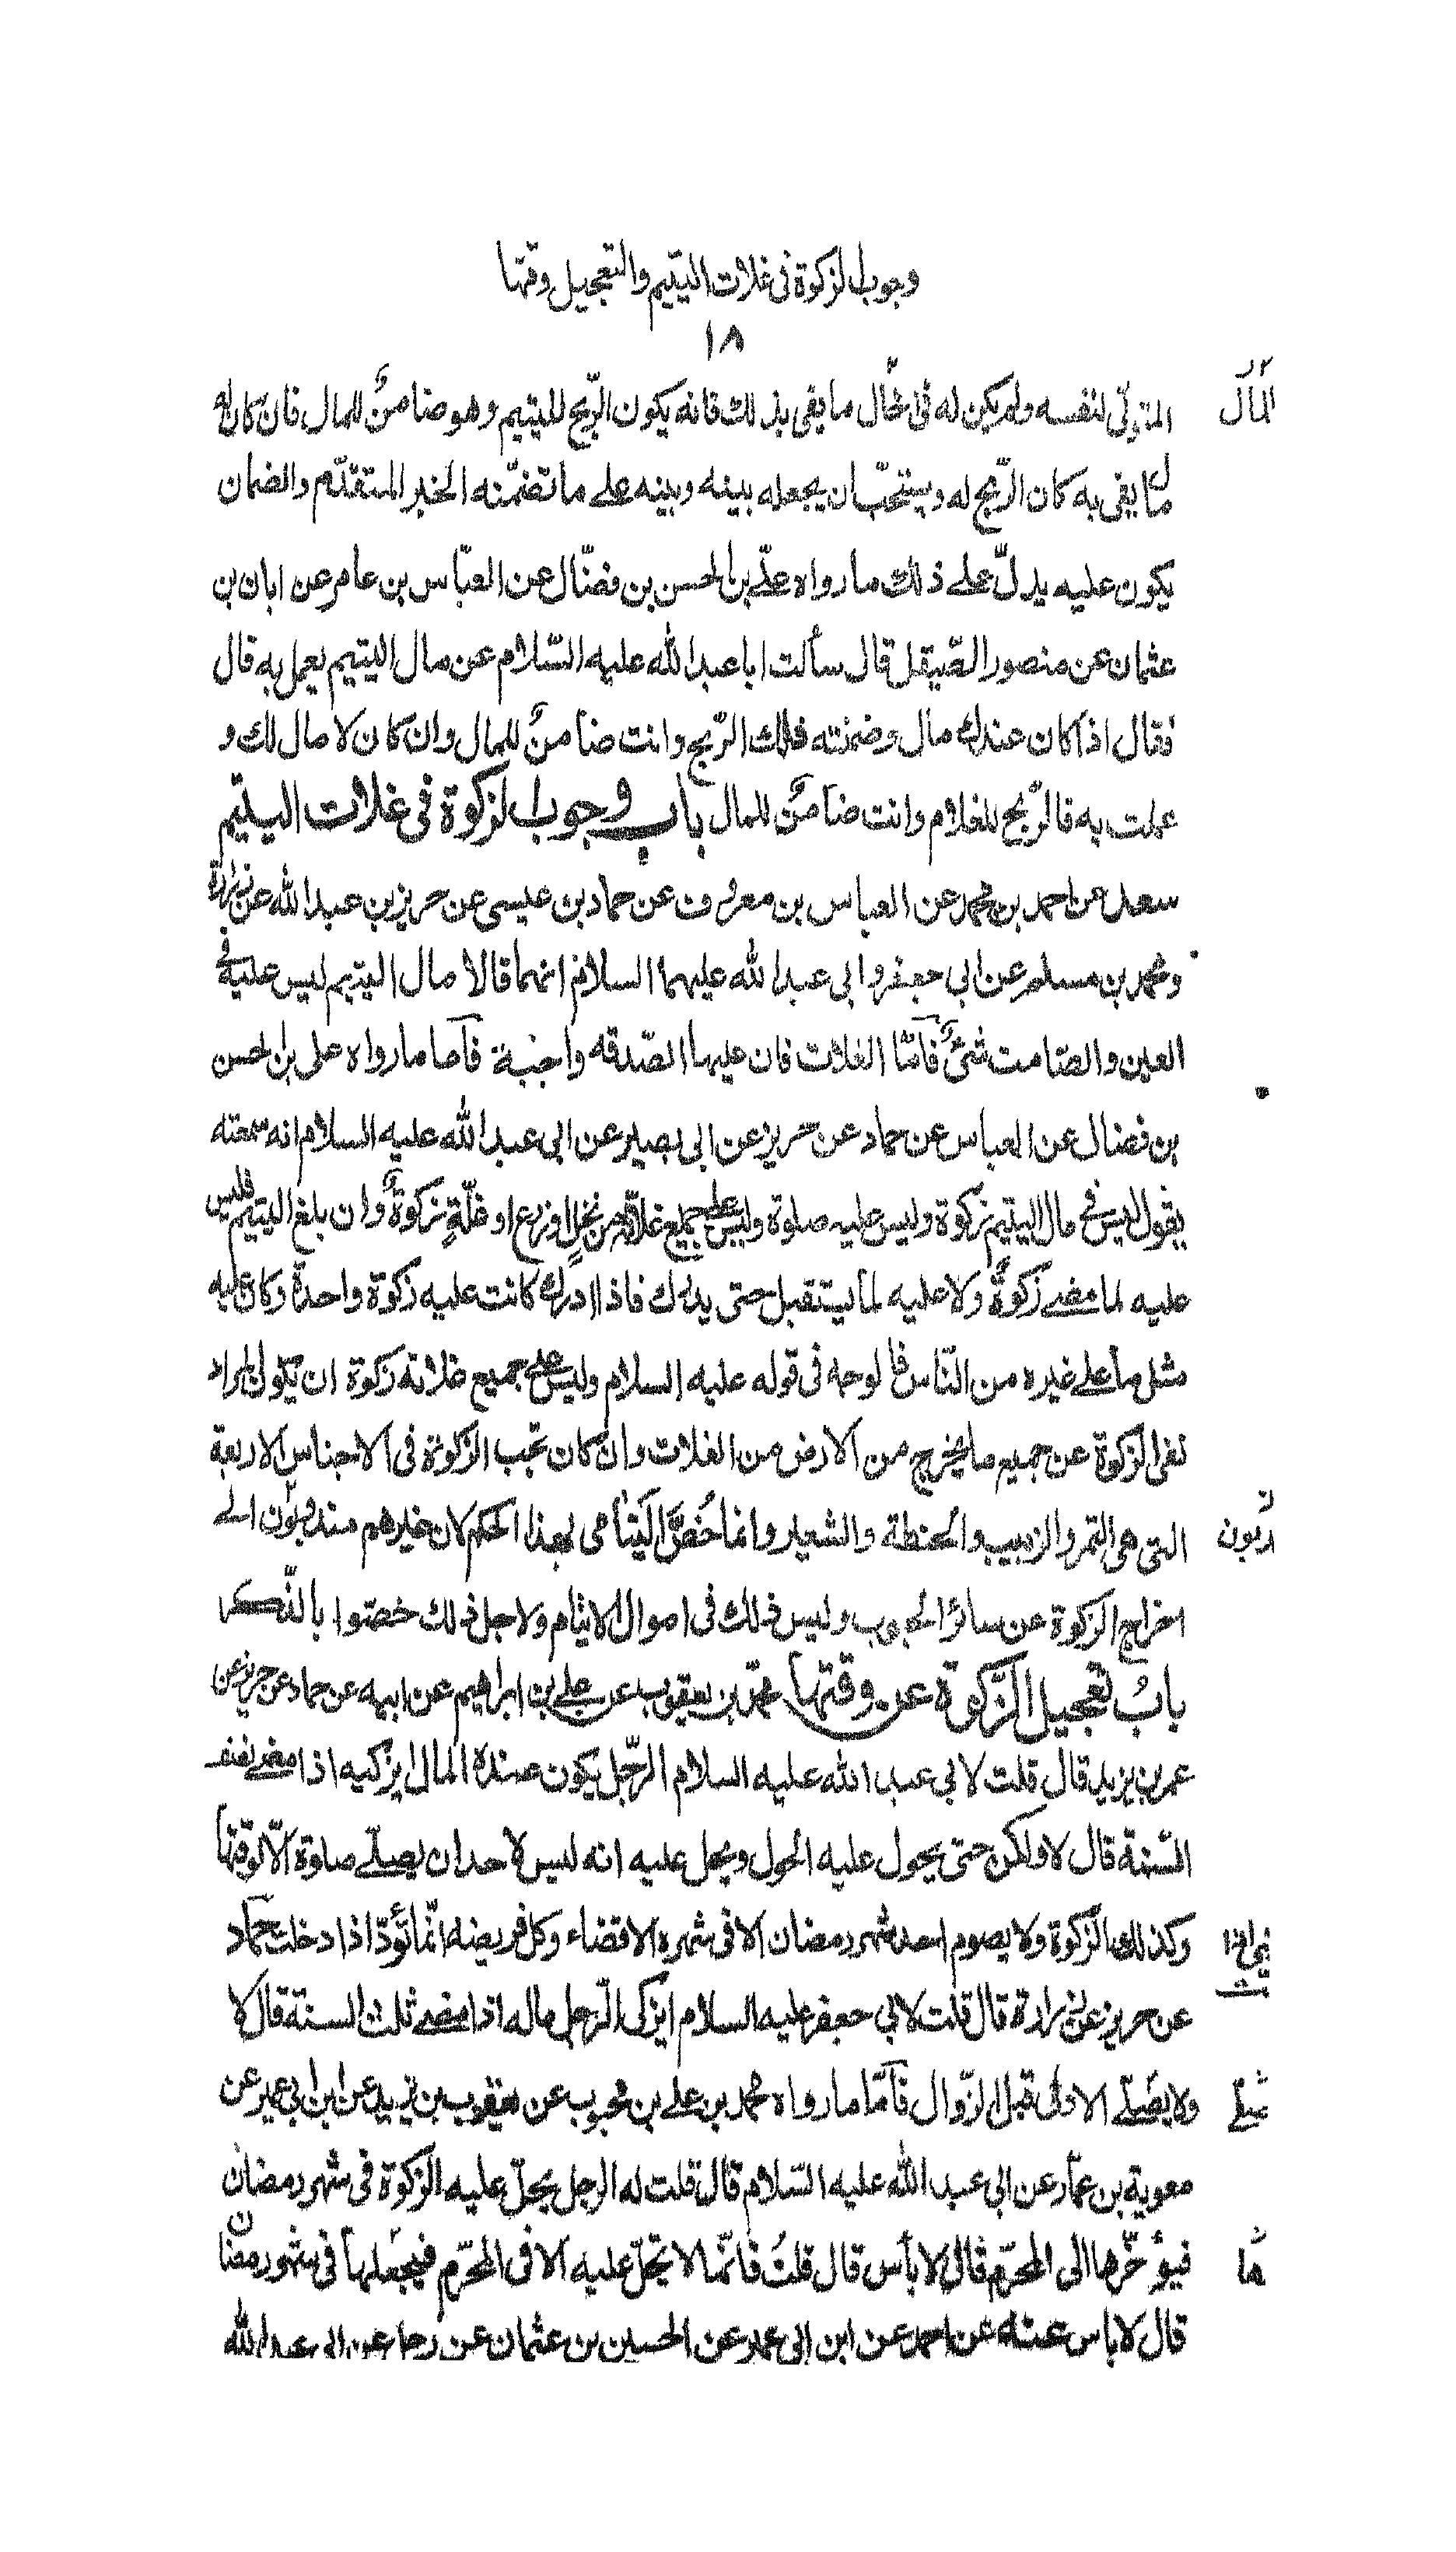 وجوب الزكوة في غلات اليتيم والتعجيل وقتها
١٨
المتولّى لنفسه ولم يكن له في الحال ما يفى بذلك فانه يكون الرّبح لليتيم وهو ضامنٌ للمال فان كان له
ما يفى به كان الرّبح له ويستحبّ ان يجعله بينه وبينه على ما تضمّنه الخبر المتقدّم والضمان
يكون عليه يدلّ على ذلك ما رواه علىّ بن الحسن بن فضّال عن العبّاس بن عامر عن ابان بن
عثمان عن منصور الصّيقل قال سألت ابا عبد الله عليه السّلام عن مال اليتيم يعمل به قال
فقال اذا كان عندك مال وضمنته فلك الرّبح وانت ضامنٌ للمال وان كان لا مال لك و
عملت به فالرّبح للغلام وانت ضامنٌ للمال باب وجوب الزكوة في غلات اليتيم
سعد عن احمد بن محمد عن العباس بن معروف عن حماد بن عيسى عن حريز بن عبد الله عن زرارة
ومحمد بن مسلم عن ابي جعفر وابي عبد الله عليهما السلام انهما قالا مال اليتيم ليس عليه في
العين والصّامت شئٌ فامّا الغلات فان عليها الصّدقه واجبة فاما ما رواه على بن الحسن
بن فضال عن العباس عن حماد عن حريز عن ابى بصير عن ابى عبد الله عليه السلام انه سمعته
يقول ليس في مال اليتيم زكوة وليس عليه صلوة وليس على جميع غلاته من نخلٍ او زرع او غلّةٍ زكوةٌ وان بلغ اليتيم فليس
عليه لما مضى زكوةٌ ولا عليه لما يستقبل حتى يدرك فاذا ادرك كانت عليه زكوة واحدة وكان عليه
مثل ما على غيره من النّاس فالوجه في قوله عليه السلام وليس على جميع غلاته زكوة ان يكون المراد
نفى الزكوة عن جميع ما يخرج من الارض من الغلات وان كان تجب الزكوة في الاجناس الاربعة
التى هى التمر والزبيب والحنطة والشعير وانما خُصَّ اليتامى بهذا الحكم لان غيرهم مندوبون الى
اخراج الزكوة عن سائر الحبوب وليس ذلك في اموال الايتام ولاجل ذلك خصّوا بالذّكر
بابُ تعجيل الزّكوة عن وقتها محمّد بن يعقوب عن على بن ابراهيم عن ابيه عن حماد عن حريز عن
عمر بن يزيد قال قلت لابي عبد الله عليه السلام الرّجل يكون عنده المال ايزكيه اذا مضى نصف
السّنة قال لا ولكن حتى يحول عليه الحول ويحل عليه انه ليس لاحد ان يصلّى صلوة الّا لوقتها
وكذلك الزكوة ولا يصوم احد شهر رمضان الا في شهره الا قضاء وكل فريضه انّما تؤدّى اذا دخلت حماد
عن حريز عن زرارة قال قلت لابي جعفر عليه السلام ايزكى الرّجل ماله اذا مضى ثلث السنة قال لا
ولا يصلّى الاولى قبل الزّوال فامّا ما رواه محمد بن على بن محبوب عن يعقوب بن يزيد عن ابن ابي عمير عن
معوية بن عمّار عن ابي عبد الله عليه السّلام قال قلت له الرجل يحلّ عليه الزّكوة في شهر رمضان
فيؤخّرها الى المحرّم قال لا بأس قال قلتُ فانّها لا تحلّ عليه الا في المحرّم فيعجّلها في شهر رمضان
قال لا باس عنه عن احمد عن ابن ابى عمير عن الحسين بن عثمان عن رجل عن ابى عبد الله